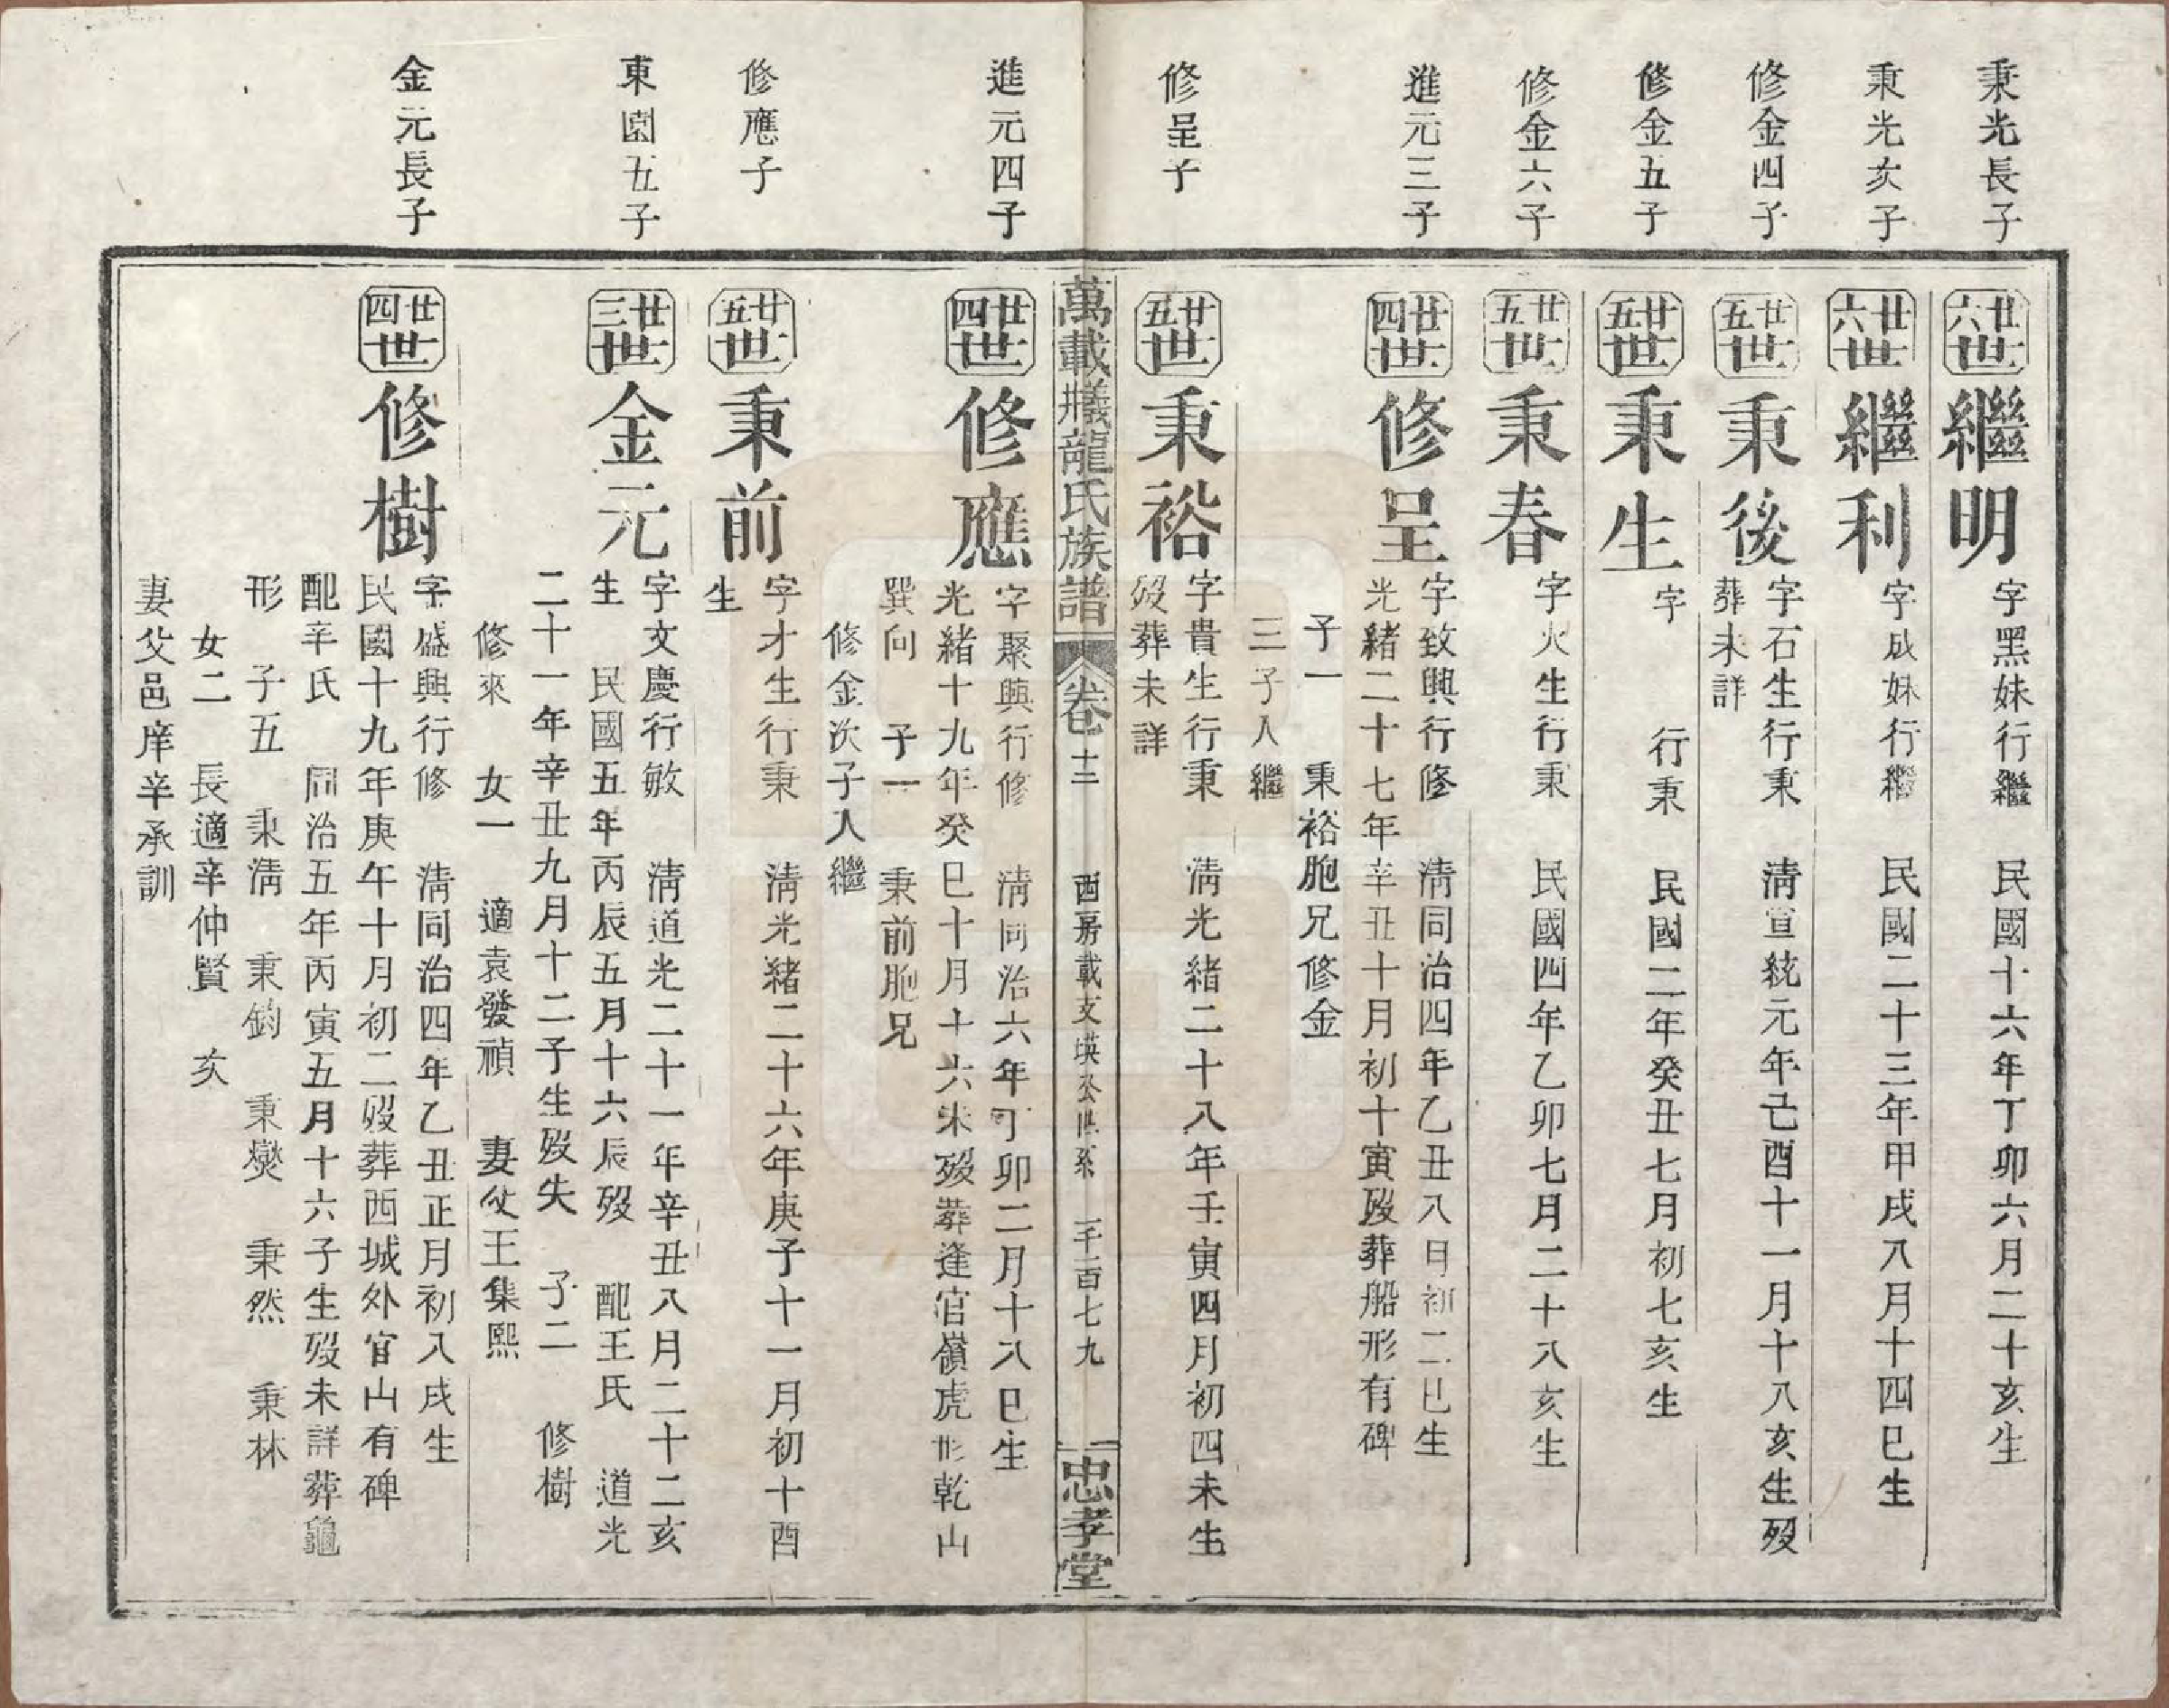 秉光長子
廿六世 繼明 字黑妹行繼 民國十六年丁卯六月二十亥生
秉光次子
廿六世 繼利 字成妹行繼 民國二十三年甲戌八月十四巳生
修金四子
廿五世 秉後 字石生行秉 清宣統元年己酉十一月十八亥生歿
葬未詳
修金五子
廿五世 秉生 字 行秉 民國二年癸丑七月初七亥生
修金六子
廿五世 秉春 字火生行秉 民國四年乙卯七月二十八亥生
進元三子
廿四世 修呈 字致興行修 清同治四年乙丑八月初二巳生
光緒二十七年辛丑十月初十寅歿葬船形有碑
子一 秉裕胞兄修金
三子入繼
修呈子
廿五世 秉裕 字貴生行秉 清光緒二十八年壬寅四月初四未生
歿葬未詳
萬載 龍氏族譜 卷十二 西房載支瑛公世系 一千二百七九 忠孝堂
進元四子
廿四世 修應 字聚興行修 清同治六年丁卯二月十八巳生
光緒十九年癸巳十月十六未歿葬逢官嶺虎形乾山
巽向 子一 秉前胞兄
修金次子入繼
修應子
廿五世 秉前 字才生行秉 清光緒二十六年庚子十一月初十酉
生
東園五子
廿三世 金元 字文慶行敏 清道光二十一年辛丑八月二十二亥
生 民國五年丙辰五月十六辰歿 配王氏 道光
二十一年辛丑九月十二子生歿失 子二 修樹
修來 女一 適袁發禎 妻父王集熙
金元長子
廿四世 修樹 字盛興行修 清同治四年乙丑正月初八戌生
民國十九年庚午十月初二歿葬西城外官山有碑
配辛氏 同治五年丙寅五月十六子生歿未詳葬龜
形 子五 秉清 秉鈞 秉爕 秉然 秉林
女二 長適辛仲賢 次
妻父邑庠辛承訓